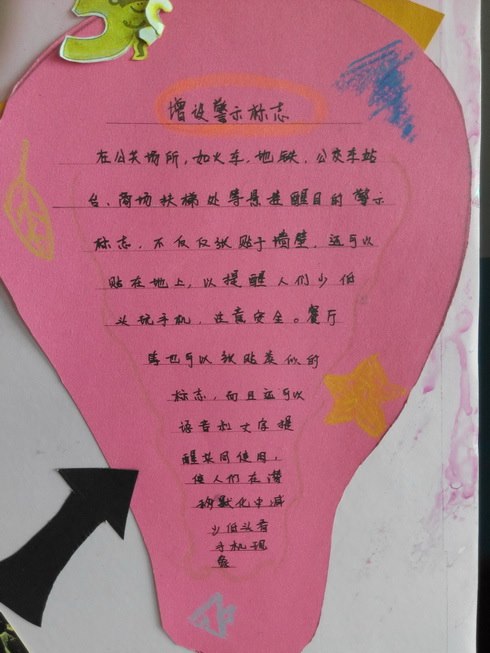 增设警示标志
在公共场所，如火车、地铁、公交车站
台、商场扶梯处等张贴醒目的警示
标志，不仅仅张贴于墙壁，还可以
贴在地上，以提醒人们少低
头玩手机，注意安全。餐厅
等也可以张贴类似的
标志，而且还可以
语音和文字提
醒共同使用，
使人们在潜
移默化中减
少低头看
手机现
象